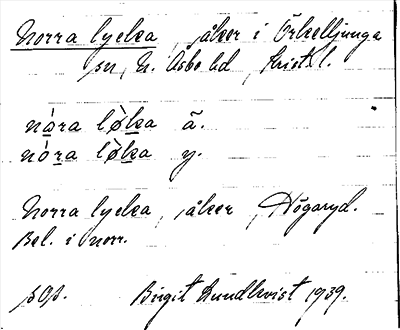 Norra lycka, åker i Örkelljunga
sn, N. Åsbo hd, Krist. l.
nòra lø̀ka ä.
nòra lø̀ka y.
Norra lycka, åker, Högaryd.
Bel. i norr.
sop. Birgit Lundkvist 1939.